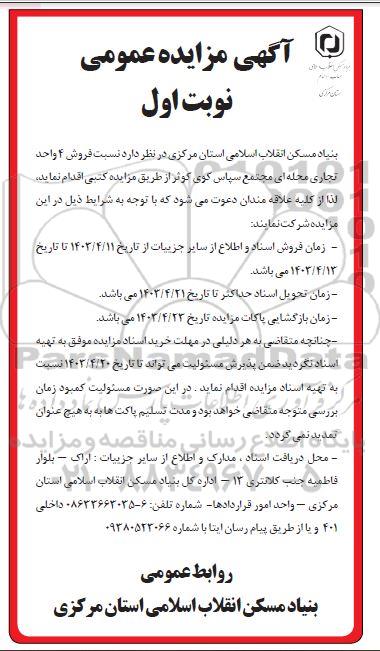 آگهی مزایده عمومی
نوبت اول
استان مرکزی
بنیاد مسکن انقلاب اسلامی استان مرکزی در نظر دارد نسبت فروش ۴ واحد
تجاری محله ای مجتمع سپاس کوی کوثر از طریق مزایده کتبی اقدام نماید،
لذا از کلیه علاقه مندان دعوت می شود که با توجه به شرایط ذیل در این
مزایده شرکت نمایند:
- زمان فروش اسناد و اطلاع از سایر جزییات از تاریخ ۱۴۰۳/۴/۱۱ تا تاریخ
۱۴۰۳/۴/۱۳ می باشد.
- زمان تحویل اسناد حداکثر تا تاریخ ۱۴۰۳/۴/۲۱ می باشد.
- زمان بازگشایی پاکات مزایده تاریخ ۱۴۰۳/۴/۲۳ می باشد.
-چنانچه متقاضی به هر دلیلی در مهلت خرید اسناد مزایده موفق به تهیه
اسناد نگردید ضمن پذیرش مسئولیت می تواند تا تاریخ ۱۴۰۳/۴/۲۰ نسبت
به تهیه اسناد مزایده اقدام نماید . در این صورت مسئولیت کمبود زمان
بررسی متوجه متقاضی خواهد بود و مدت تسلیم پاکت ها به هیچ عنوان
تمدید نمی گردد:
- محل دریافت اسناد ، مدارک و اطلاع از سایر جزییات : اراک – بلوار
فاطمیه جنب کلانتری ۱۳ – اداره کل بنیاد مسکن انقلاب اسلامی استان
مرکزی – واحد امور قراردادها- شماره تلفن: ۶-۰۸۶۳۳۶۶۳۰۳۵ داخلی
۴۰۱ و یا از طریق پیام رسان ایتا با شماره ۰۹۳۸۰۵۲۳۰۶۶
روابط عمومی
بنیاد مسکن انقلاب اسلامی استان مرکزی